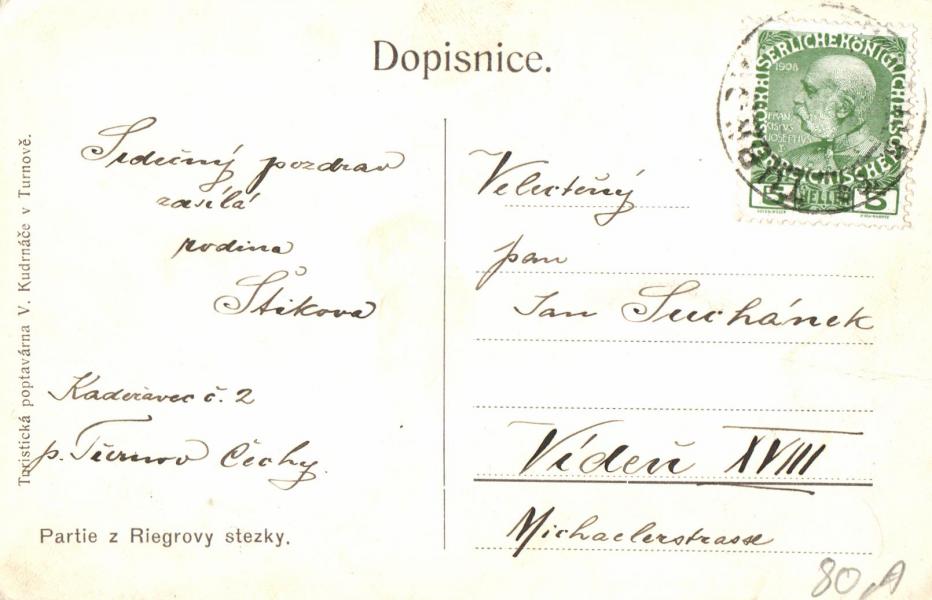 Dopisnice.
KAISERLICHE KÖNIGLICHE ÖSTERREICHISCHE
1908
5 HELLER 5
Turistická poptavárna V. Kudrnáče v Turnově.
Srdečný pozdrav
zasílá
rodina
Štikova
Kadeřavec č. 2
p. Turnov Čechy.
Partie z Riegrovy stezky.
Velectěný
pan
Jan Suchánek
Vídeň XVIII
Michaelerstrasse
80 A